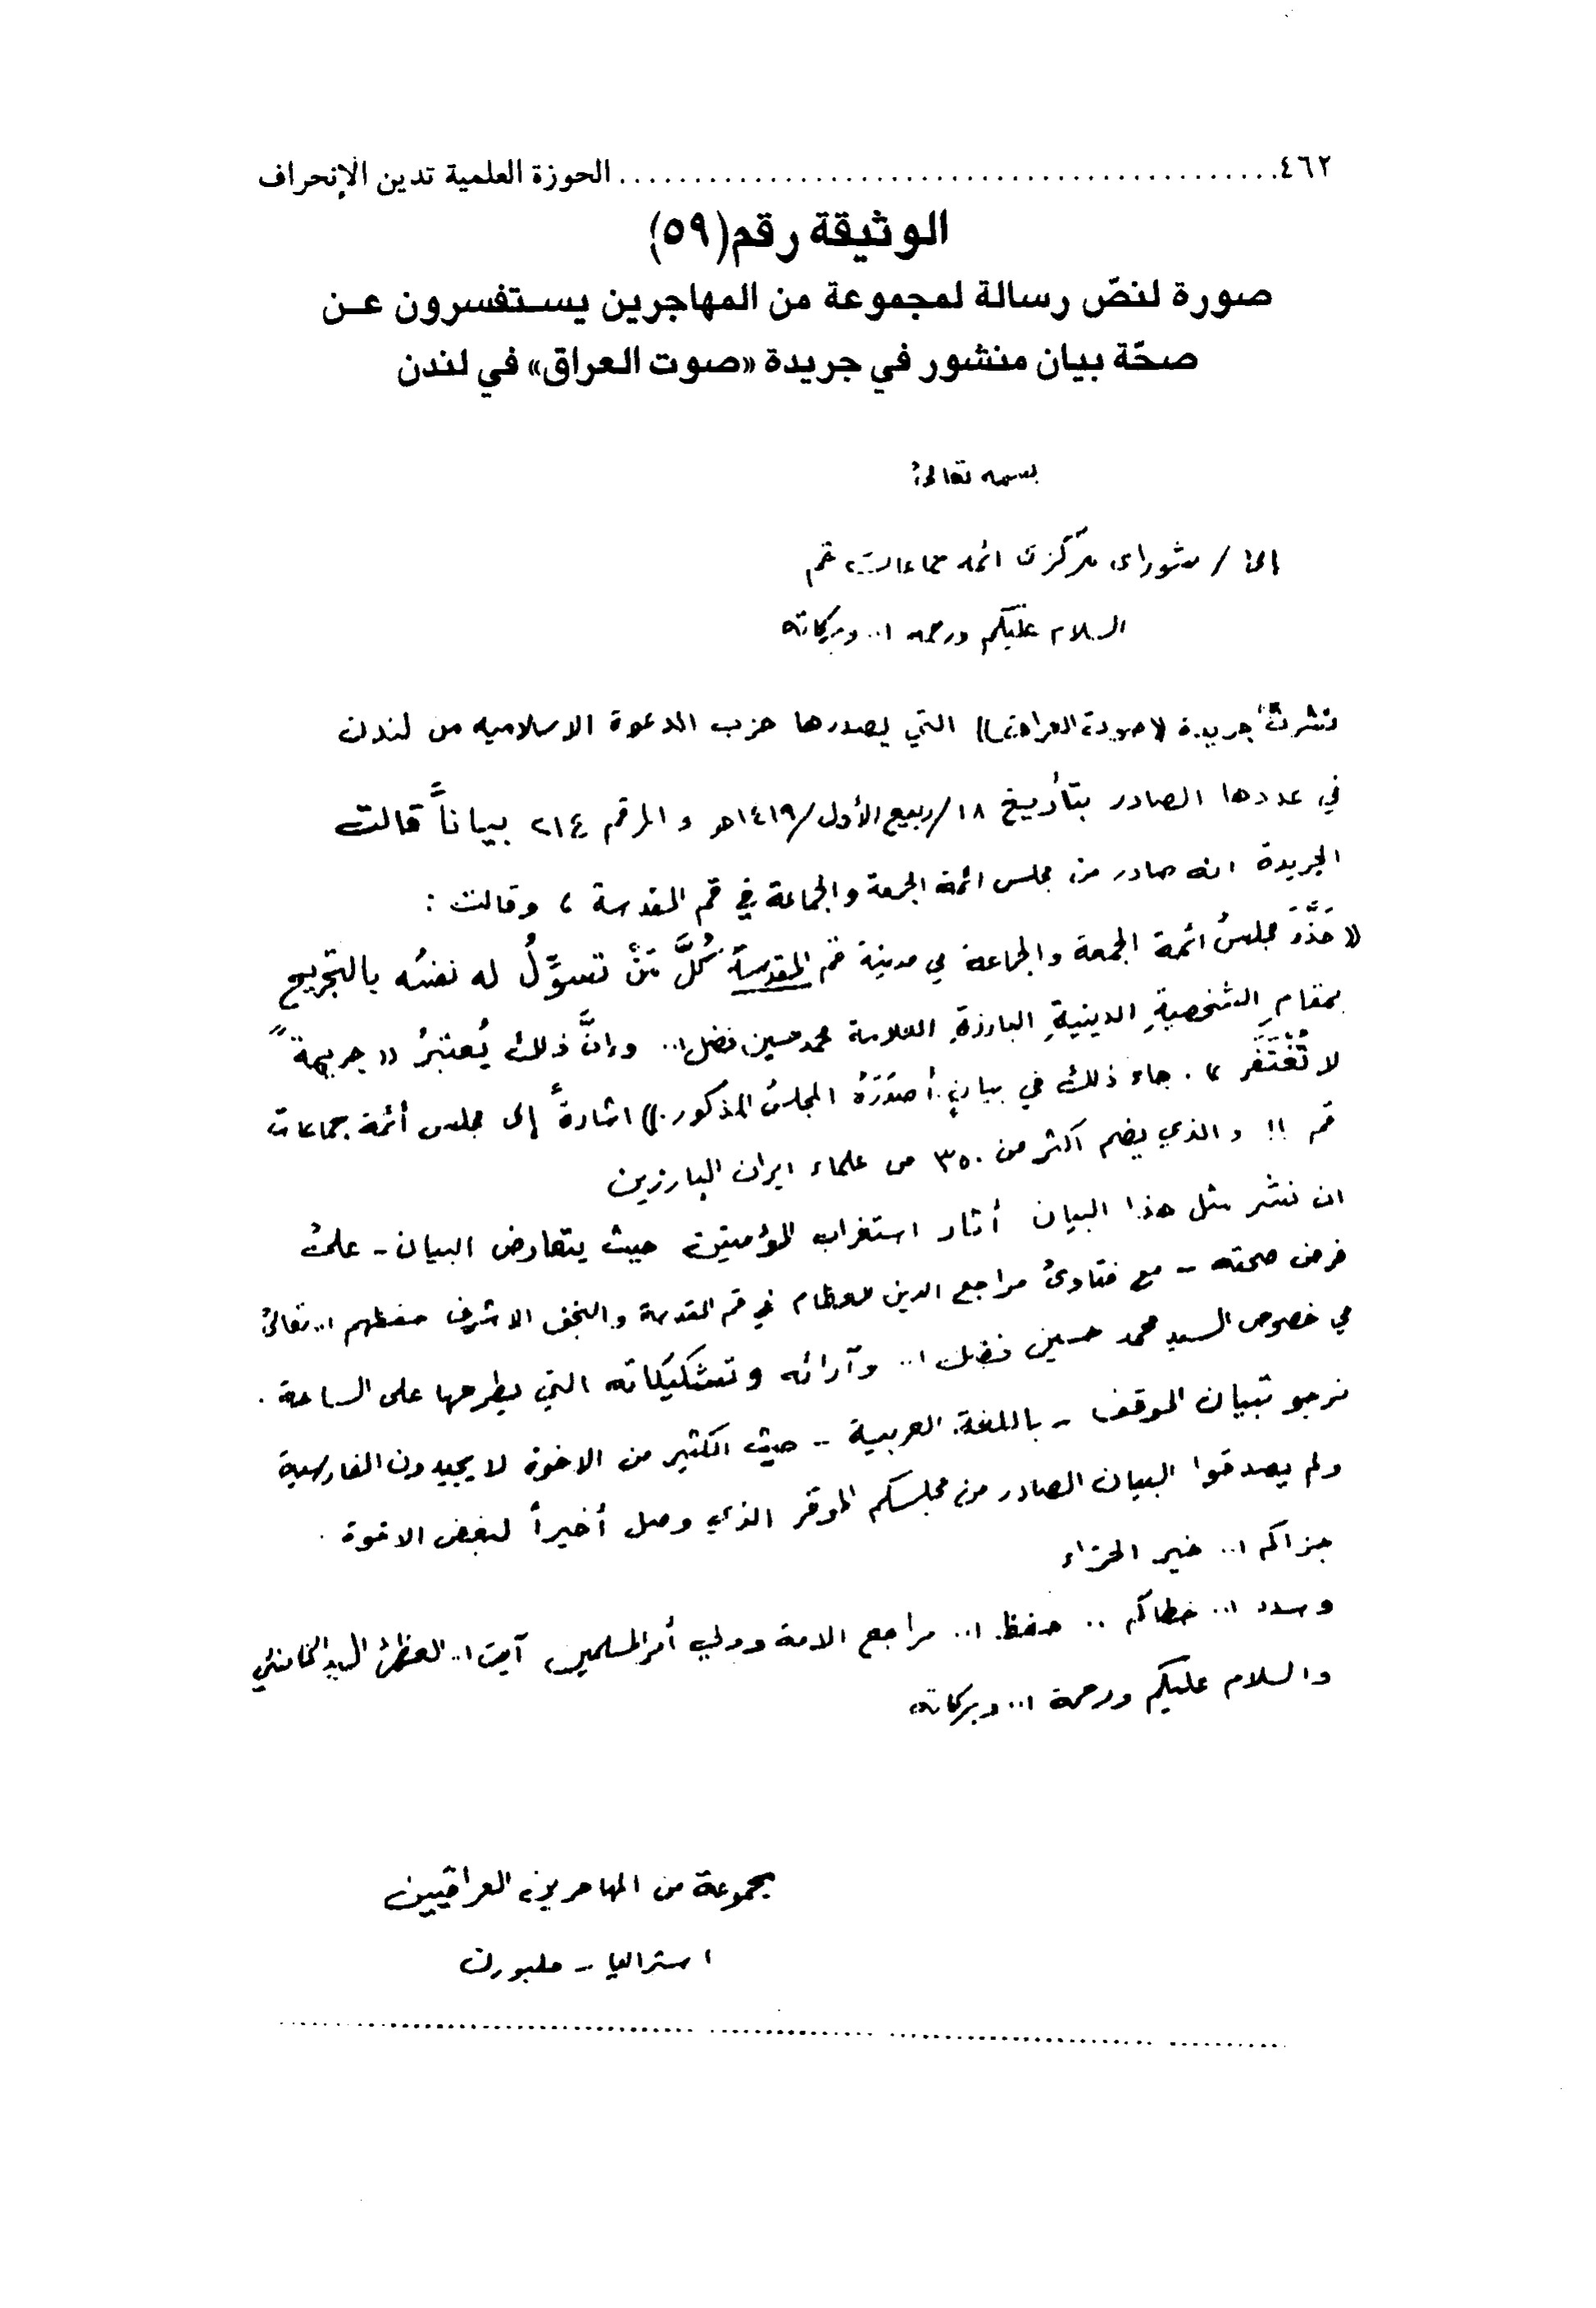 ٤٦٢ ........................................... الحوزة العلمية تدين الإنحراف
الوثيقة رقم (٥٩)
صورة لنصّ رسالة لمجموعة من المهاجرين يستفسرون عن
صحّة بيان منشور في جريدة «صوت العراق» في لندن
بسمه تعالىٰ
إلىٰ / شوراى مركزى ائمه جماعات قم
السلام عليكم ورحمه ا.. وبركاته
نشرتْ جريدة ((صوت العراق)) التي يصدرها حزب الدعوة الاسلاميه من لندن
في عددها الصادر بتأريخ ١٨/ربيع الأول/١٤١٩هـ والمرقم ٢١٤ بياناً قالت
الجريدة انه صادر من مجلس ائمة الجمعة والجماعة في قم المقدسة ، وقالت :
((حَذَّرَ مجلسُ ائمة الجمعة والجماعة في مدينة قم المقدسة كُلَّ مَنْ تسوِّلُ له نفسُه بالتجريح
بمقامِ الشخصيةِ الدينيةِ البارزةِ العلامة محمد حسين فضل ا.. وإنَّ ذلك يُعتبرُ ((جريمةً
لا تُغْتَفَر )) . جاء ذلك في بيانٍ أصدَرَهُ المجلسُ المذكور .)) اشارةً إلى مجلس أئمة جماعات
قم !! والذي يضم اكثر من ٣٥٠ من علماء ايران البارزين
ان نشر مثل هذا البيان أثار استغراب المؤمنين حيث يتعارض البيان - علىٰ
فرض صحته - مع فتاوىٰ مراجع الدين العظام في قم المقدسة والنجف الاشرف حفظهم ا.. تعالىٰ
في خصوص السيد محمد حسين فضل ا.. وآرائه وتشكيكاته التي يطرحها على الساحة .
نرجو تبيان الموقف - باللغة العربية - حيث الكثير من الاخوة لا يجيدون الفارسية
ولم يصدقوا البيان الصادر من مجلسكم الموقر الذي وصل أخيراً لبعض الاخوة .
جزاكم ا.. خير الجزاء
وسدد ا.. خطاكم .. حفظ ا.. مراجع الامة وولي أمر المسلمين آية ا.. العظمىٰ السيد الخامنئي
والسلام عليكم ورحمة ا.. وبركاته
مجموعة من المهاجرين العراقيين
استراليا - ملبورن